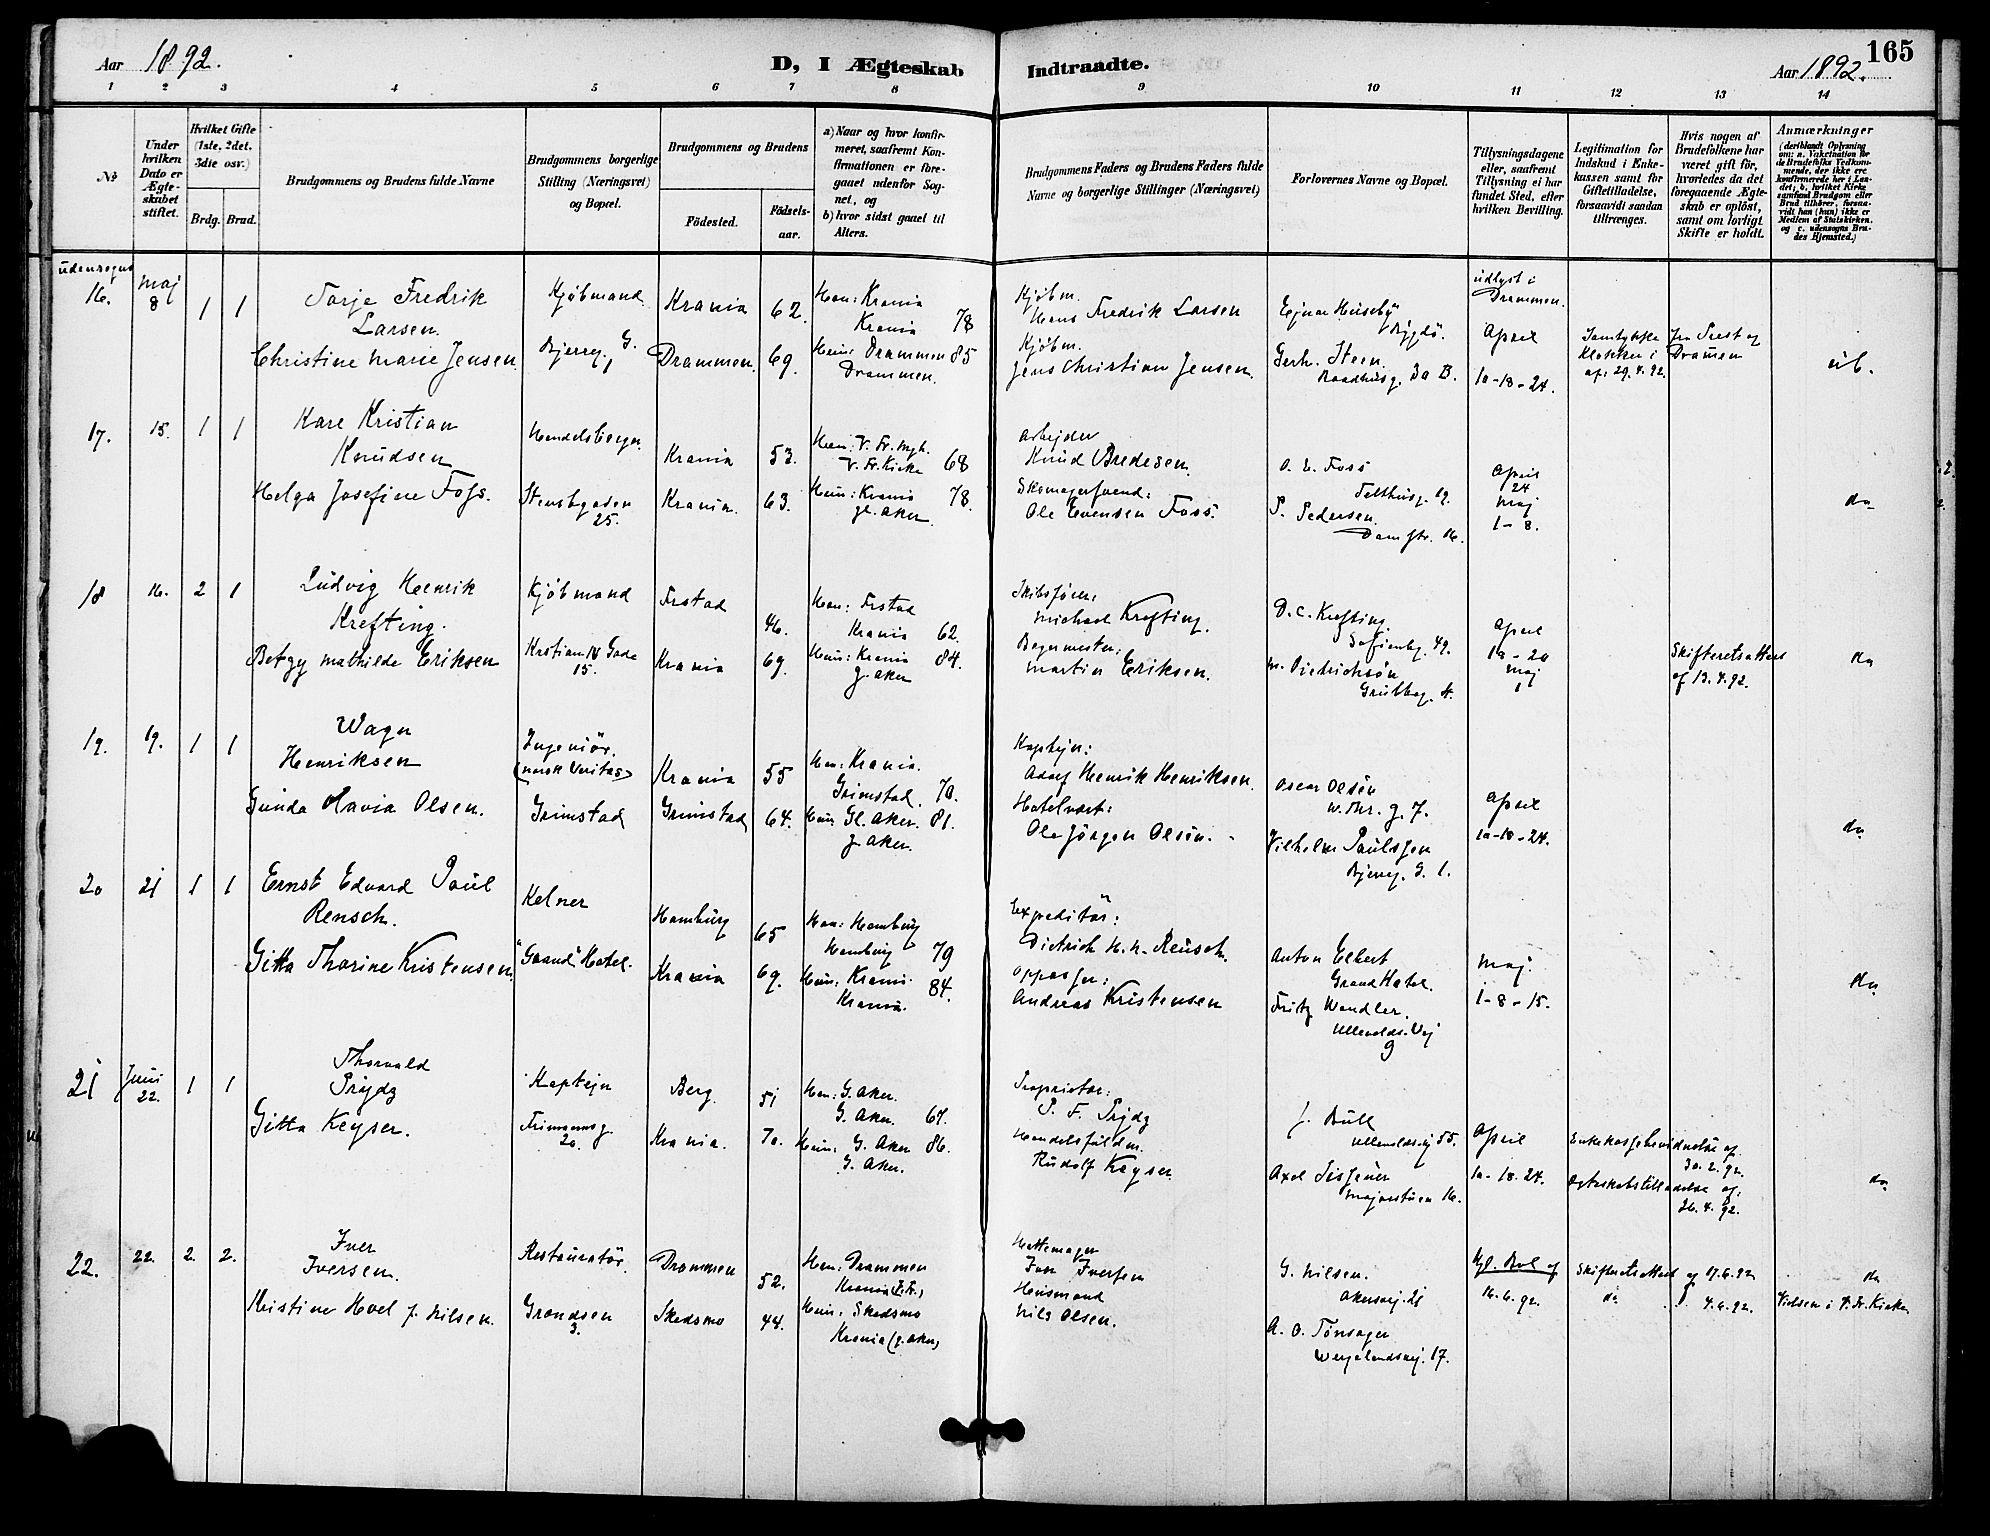 Aar 1892.
D, I Ægteskab Indtraadte.
Aar 1892.
165
1 2 3 4 5 6 7 8 9 10 11 12 13 14
№
Under hvilken Dato er Ægteskabet stiftet.
Hvilket Gifte (1ste, 2det, 3die osv.)
Brdg. Brud.
Brudgommens og Brudens fulde Navne
Brudgommens borgerlige Stilling (Næringsvei) og Bopæl.
Brudgommens og Brudens
Födested.
Födselsaar.
a) Naar og hvor konfirmeret, saafremt Konfirmationen er foregaaet udenfor Sognet, og
b) hvor sidst gaaet til Alters.
Brudgommens Faders og Brudens Faders fulde Navne og borgerlige Stillinger (Næringsvei)
Forlovernes Navne og Bopæl.
Tillysningsdagene eller, saafremt Tillysning ei har fundet Sted, efter hvilken Bevilling.
Legitimation for Indskud i Enkekassen samt for Giftetilladelse, forsaavidt saadan tiltrænges.
Hvis nogen af Brudefolkene har været gift för, hvorledes da det foregaaende Ægteskab er oplöst, samt om lovligt Skifte er holdt.
Anmærkninger
(deriblandt Oplysning om: a. Vakcination for de Brudefolks Vedkommende, der ikke ere konfirmerede her i Landet; b. hvilket Kirkesamfund Brudgom eller Brud tilhörer, forsaavidt han (hun) ikke er Medlem af Statskirken. og c. udensogns Brudes Hjemsted.)
udensogns
16. Maj 8 1 1
Tarje Fredrik
Larsen.
Christine Marie Jensen
Kjöbmand
Bjerreg. G.
Krania 62.
Drammen. 69.
Han: Krania
Krania 78
Hun: Drammen 85
Drammen.
Kjöbm.
Hans Fredrik Larsen
Kjöbm.
Jens Christian Jensen
Ejnar Huseby
Bygdö.
Gerh. Steen
Raadhusg. 3a B.
udlyst i
Drammen.
April
10-18-24.
Samtykke fra Prest og
Klokker i Dramen
af: 29.4.92.
ub.
17. 15. 1 1
Kare Kristian
Knudsen
Helga Josefine Foss.
Handelsborger
Stensbgaden
25.
Krania 53.
Krania. 63.
Han: V. Fr. mgh.
V. Fr. Kirke 68
Hun: Krania 78.
gl. Aker.
Arbejder
Knud Bredesen.
Skomagersvend:
Ole Evensen Foss.
O. E. Foss
Telthusg. 19.
P. Pedersen.
Damstr. 16.
April
24
Maj
1-8.
do
18 16. 2 1
Ludvig Henrik
Krefting.
Betzy Mathilde Eriksen
Kjöbmand
Kristian IV Gade
15.
Frstad 46.
Krania 69.
Han: Frstad
Krania 62.
Hun: Krania 84.
g. Aker
Skibsförer,
Michael Krefting.
Bygmester:
Martin Eriksen.
D. C. Krefting.
Sofienbg. 49.
M. Diedrichsön
Grubbeg. 4.
April
18-20
Maj
1
Skifteretsattest
af 13.4.92.
do
19. 19. 1 1
Wagn
Henriksen
Gunda Olavia Olsen.
Ingeniör.
(norsk Veritas)
Grimstad
Krania 55
Grimstad 64.
Han: Krania.
Grimstad. 70.
Hun Gl. Aker. 81.
g. Aker.
Kaptejn:
Adolf Henrik Henriksen.
Hotelvært:
Ole Jörgen Olsen.
Oscar Olsen
W. Thr. g. 7.
Vilhelm Paulssen
Bjerreg. G. 1.
April
10-18-24.
do
20 21 1 1
Ernst Edvard Paul
Rensch.
Gitta Thorine Kristensen.
Kelner
"Grand" Hotel.
Hamburg 65
Krania 69.
Han: Hamburg
Hamburg 79
Hun: Krania 84.
Krania.
Expeditör:
Dietrich H. N. Reusch.
Oppasser:
Andreas Kristensen
Anton Elbert
Grand Hotel.
Fritz Wendler.
Ullevolds. Vej
9
Maj.
1-8-15.
do
21 Juni 22. 1 1
Thorvald
Prydz
Gitta Keyser.
Kaptejn
Frimannsg.
20.
Berg. 51
Krania. 70.
Han: G. Aker.
G. Aker. 67.
Hun: G. Aker 86.
G. Aker.
Proprietær:
P. F. Prydz
Handelsfuldm.
Rudolf Keyser
J. Bull
Ullevoldsvej 55.
Axel
Majorstuen 16.
April
10-18.24.
Enkekassebevidnelse af
30.2.92.
Ægteskabstilladelse af:
26.4.92.
do
22. 22. 2. 2.
Iver
Iversen.
Kristine Hoel f. Nilsen.
Restauratör.
Grændsen
3.
Drammen 52.
Skedsmo 44.
Han: Drammen
Krania (J. K.)
Hun: Skedsmo
Krania (g. Aker)
Hattemager
Iver Iversen
Husmand
Nils Olsen.
G. Nilsen.
Akersvej. 21
A. O. Tönsager
Wergelandsvej. 17.
Kgl. Bvl af
16.6.92.
Skifteretsattest af 17.6.92
do 7.6.92.
do
Vielsen i V. Fr. Kirke